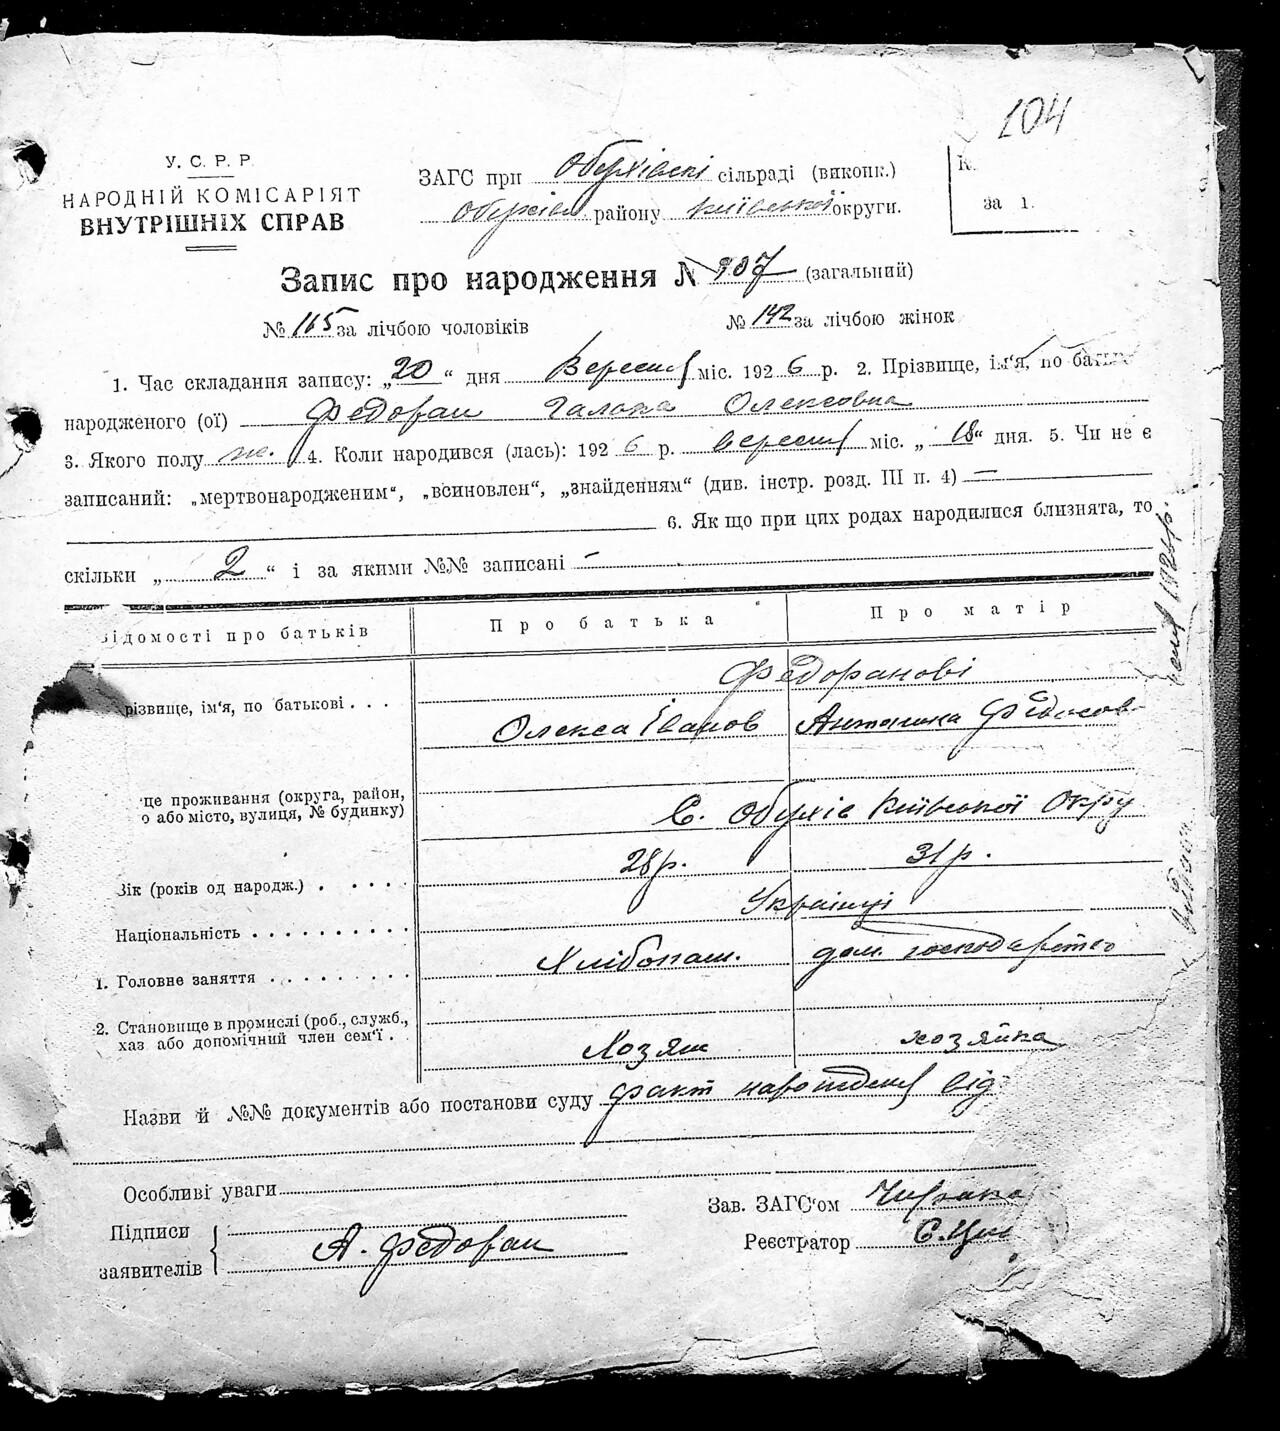 104
У. С. Р. Р.
НАРОДНІЙ КОМІСАРІЯТ
ВНУТРІШНІХ СПРАВ
ЗАГС при Обухівскі сільраді (виконк.)
Обухів району Київської округи.
К.
за 1.
Запис про народження № 307 (загальний)
№ 165 за лічбою чоловіків
№ 142 за лічбою жінок
1. Час складання запису: „20“ дня Вересня міс. 1926 р. 2. Прізвище, ім'я, по батьк
народженого (ої) Федоран Галона Олексовна
3. Якого полу ж. 4. Коли народився (лась): 1926 р. вересня міс. „18“ дня. 5. Чи не є
записаний: „мертвонародженим“, „всиновлен“, „знайденням“ (див. інстр. розд. III п. 4) —
6. Як що при цих родах народилися близнята, то
скільки „2“ і за якими №№ записані —
відомості про батьків
Про батька
Про матір
різвище, ім'я, по батькові . . .
Федоранові
Олекса Іванов
Антонина Федосов
це проживання (округа, район,
о або місто, вулиця, № будинку)
С. Обухів Київської Окру
Вік (років од народж.) . . . . .
28 р.
31 р.
Національність . . . . . . . . . .
Українці
1. Головне заняття . . . . . . . . .
Хлібопаш.
дом. господарство
2. Становище в промислі (роб., служб.,
хаз або допомічний член сем'ї . .
Хозяін
хозяйка
Назви й №№ документів або постанови суду факт народження від
Особливі уваги
Зав. ЗАГС'ом
Підписи
заявителів
А. Федоран
Реєстратор